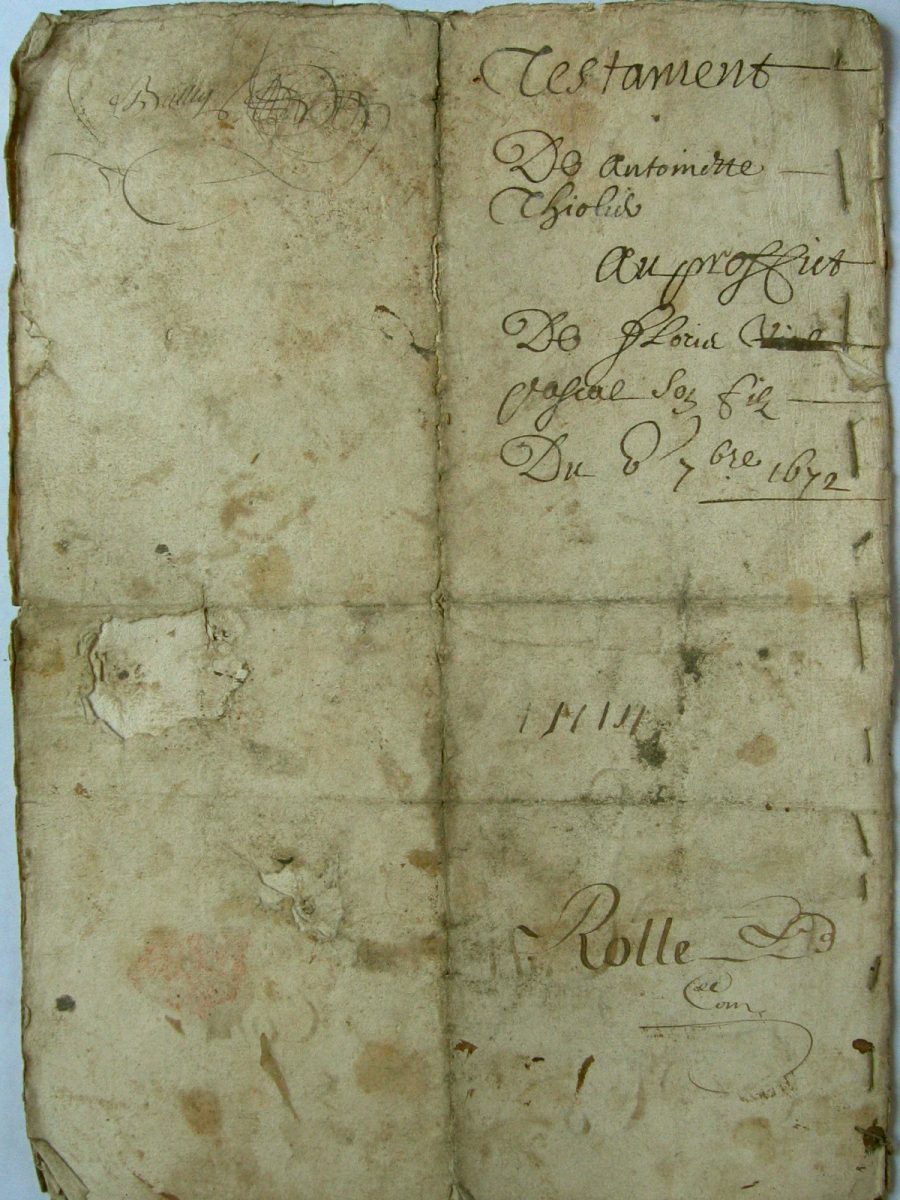 Bailly
Testament
De Antoinette
Thiolier
Au proffict
De Floria
pascal Son filz
Du 7bre 1672
Rolle
Com